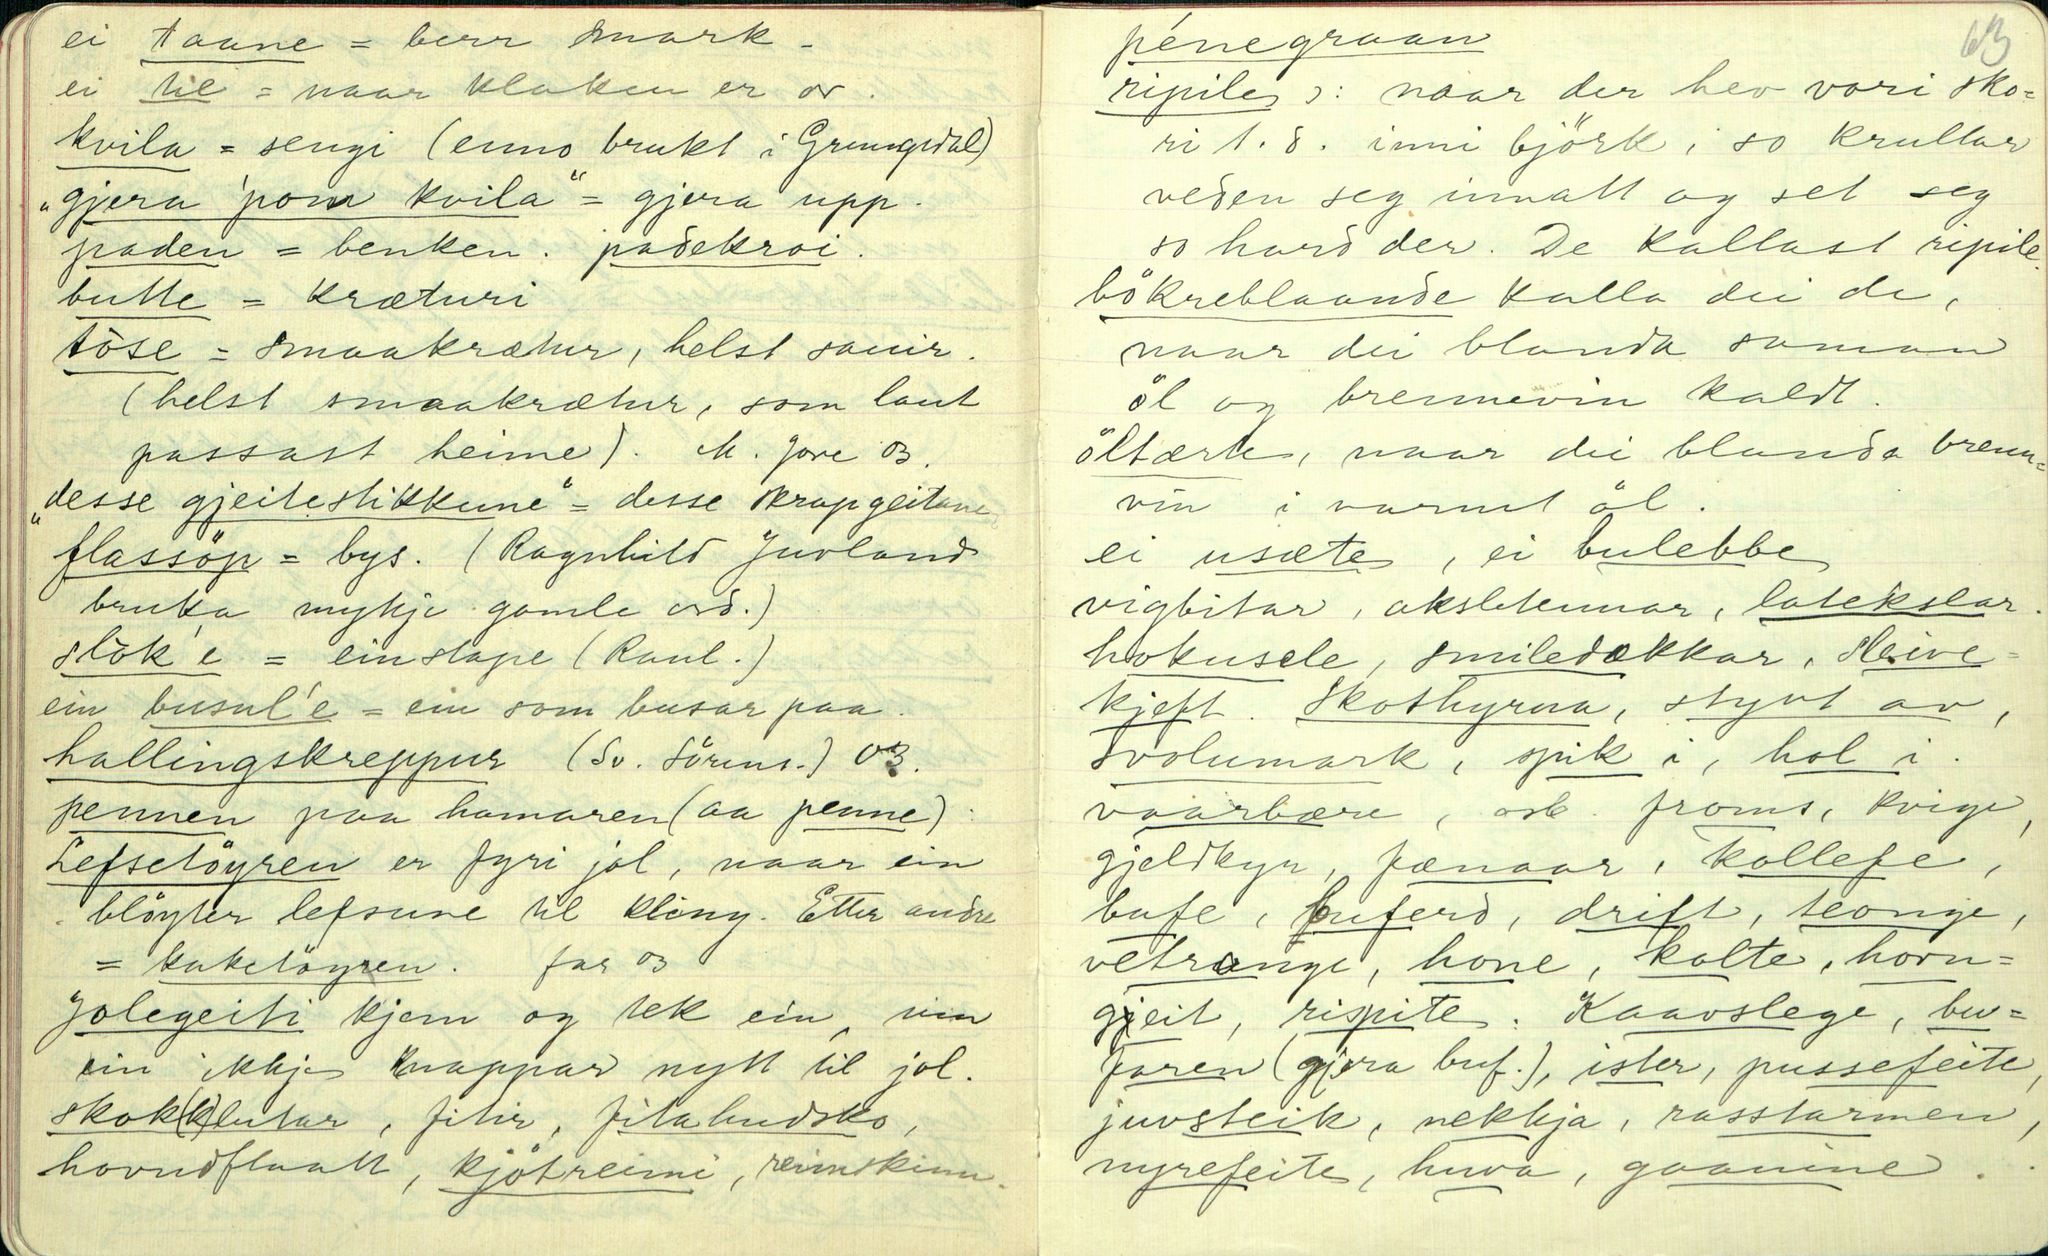 ei taane = berr mark -
ei til = naar klaken er or.
kvila = sengi (enno brukt i Grungedal)
"gjera 'pom kvila" = gjera upp.
paden = benken. padekroi.
butte = kræturi
tòse = smaakrætur, helst sauir.
(helst smaakrætur, som laut
passast heime). M. Jore 03.
"desse gjeitestikkune" = desse skrapgeitane
flassöp = bys. (Ragnhild Juvland
bruka mykje gamle ord.)
slòk'e = einstape (Raul.)
ein busul'e = ein som busar paa.
hallingskreppur (Sv. Sörens.) 03.
pennen paa hamaren (aa penne):
Lefsetöyren er fyri jol, naar ein
blöyter lefsune til kling. Etter andre
= kaketöyren. far 03
Jolegeiti kjem og tek ein, um
ein ikkje knappar nytt til jol.
skok(k)lutar, fitir, fitahudsko,
hovudflaatt, kjötreimi, reimskinn.
63
pénegraan
ripile ɔ: naar der hev vori sko-
ri t. d. inni björk, so krullar
veden seg innatt og set seg
so hard der. De kallast ripile.
bökreblaande kalla dei de,
naar dei blanda saman
öl og brennevin kaldt.
öltærte, naar dei blanda brenn-
vin i varmt öl.
ei usæte, ei bulebbe
vigbitar, aksletennar, latekslar.
hokusele, smiledokkar, sleive-
kjeft. Skothyrna, styvt av,
svolumark, spik i, hol i.
vaarbære, ost froms, kvige,
gjeldkyr, fænaar, kollefe,
bufe, buferd, drift, teonge,
vetrunge, hone, kolte, horn-
gjeit, rispite. Kaavslege, bu-
faren (gjera buf.), ister, pussefeite,
juvsteik, nekkja, rasstarmen,
nyrefeite, huva, gaanine.